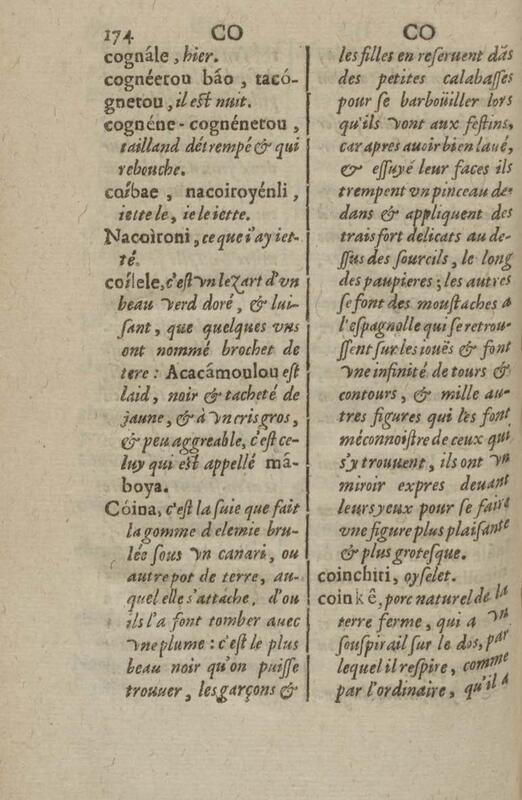 174 CO CO
cognále, hier.
cognéetou báo, tacó-
gnetou, il est nuit.
cognéne-cognénetou,
tailland détrempé & qui
rebouche.
coíbae, nacoiroyénli,
iette le, ie le iette.
Nacoìroni, ce que i'ay iet-
té.
coílele, c'est vn lezart d'vn
beau verd doré, & lui-
sant, que quelques vns
ont nommé brochet de
tere: Acacámoulou est
laid, noir & tacheté de
jaune, & à vn cris gros,
& peu aggreable, c'est ce-
luy qui est appellé má-
boya.
Cóina, c'est la suie que fait
la gomme d elemie bru-
lée sous vn canari, ou
autre pot de terre, au-
quel elle s'attache, d'ou
ils l'a font tomber auec
vne plume: c'est le plus
beau noir qu'on puisse
trouuer, les garçons &
les filles en reseruent dãs
des petites calabasses
pour se barboüiller lors
qu'ils vont aux festins,
car apres auoir bien laué,
& essuyé leur faces ils
trempent vn pinceau de-
dans & appliquent des
trais fort delicats au de-
ssus des sourcils, le long
des paupieres; les autres
se font des moustaches a
l'espagnolle qui se retrou-
ssent sur les iouës & font
vne infinité de tours &
contours, & mille au-
tres figures qui les font
méconnoistre de ceux qui
s'y trouuent, ils ont vn
miroir expres deuant
leurs yeux pour se faire
vne figure plus plaisante
& plus grotesque.
coinchiti, oyselet.
coinkê, porc naturel de la
terre ferme, qui a vn
souspirail sur le dos, par
lequel il respire, comme
par l'ordinaire, qu'il a